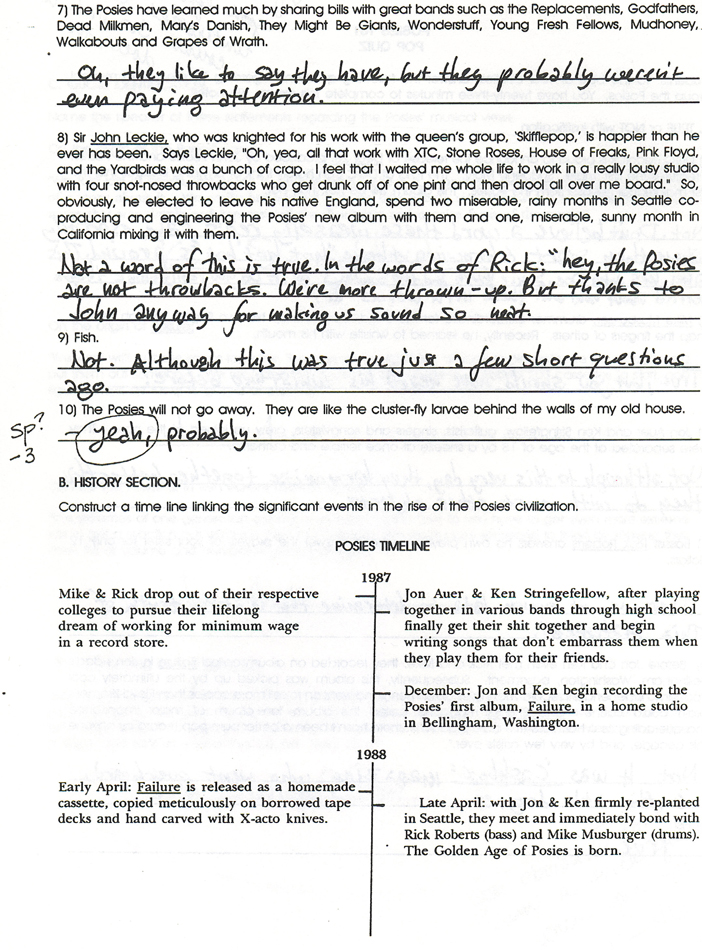 7) The Posies have learned much by sharing bills with great bands such as the Replacements, Godfathers,
Dead Milkmen, Mary's Danish, They Might Be Giants, Wonderstuff, Young Fresh Fellows, Mudhoney,
Walkabouts and Grapes of Wrath.
Oh, they like to say they have, but they probably weren't
even paying attention.
8) Sir John Leckie, who was knighted for his work with the queen's group, 'Skifflepop,' is happier than he
ever has been. Says Leckie, "Oh, yea, all that work with XTC, Stone Roses, House of Freaks, Pink Floyd,
and the Yardbirds was a bunch of crap. I feel that I waited me whole life to work in a really lousy studio
with four snot-nosed throwbacks who get drunk off of one pint and then drool all over me board." So,
obviously, he elected to leave his native England, spend two miserable, rainy months in Seattle co-
producing and engineering the Posies' new album with them and one, miserable, sunny month in
California mixing it with them.
Not a word of this is true. In the words of Rick: "hey, the Posies
are not throwbacks. We're more thrown-up. But thanks to
John anyway for making us sound so neat.
9) Fish.
Not. Although this was true just a few short questions
ago.
10) The Posies will not go away. They are like the cluster-fly larvae behind the walls of my old house.
sp?
-3
yeah, probably.
B. HISTORY SECTION.
Construct a time line linking the significant events in the rise of the Posies civilization.
POSIES TIMELINE
1987
Mike & Rick drop out of their respective
colleges to pursue their lifelong
dream of working for minimum wage
in a record store.
Jon Auer & Ken Stringefellow, after playing
together in various bands through high school
finally get their shit together and begin
writing songs that don't embarrass them when
they play them for their friends.
December: Jon and Ken begin recording the
Posies' first album, Failure, in a home studio
in Bellingham, Washington.
1988
Early April: Failure is released as a homemade
cassette, copied meticulously on borrowed tape
decks and hand carved with X-acto knives.
Late April: with Jon & Ken firmly re-planted
in Seattle, they meet and immediately bond with
Rick Roberts (bass) and Mike Musburger (drums).
The Golden Age of Posies is born.